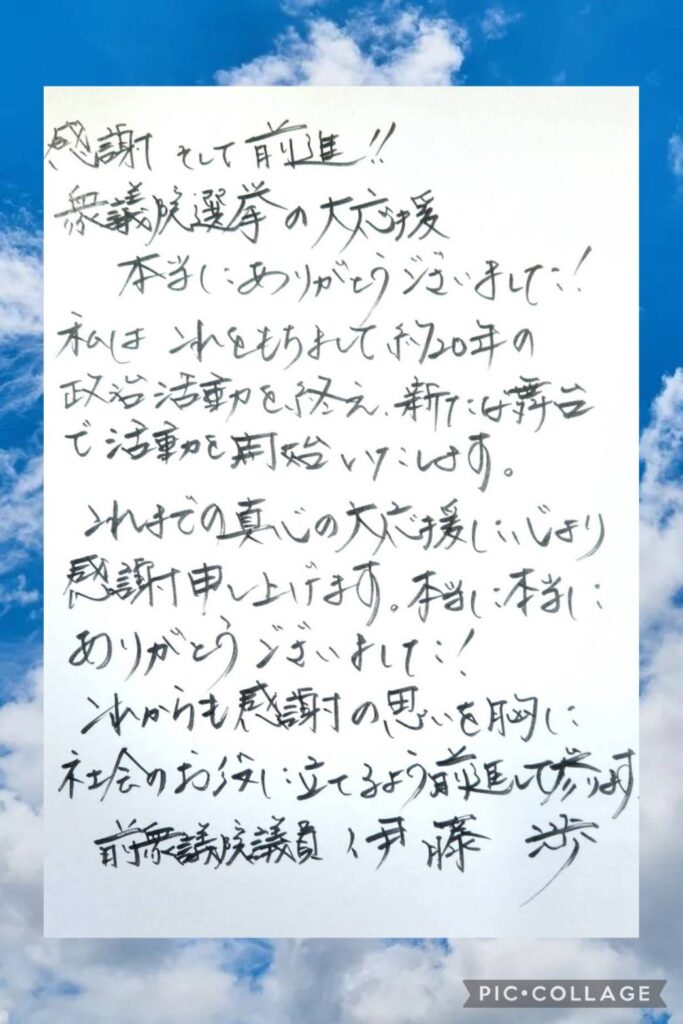 感謝 そして 前進!!
衆議院選挙の大応援
本当にありがとうございました!
私は これをもちまして 約20年の
政治活動を終え、新たな舞台
で活動を開始いたします。
これまでの真心の大応援に心より
感謝申し上げます。本当に本当に
ありがとうございました!
これからも感謝の思いを胸に
社会のお役に立てるよう前進して参ります
前衆議院議員 伊藤 渉
PIC•COLLAGE